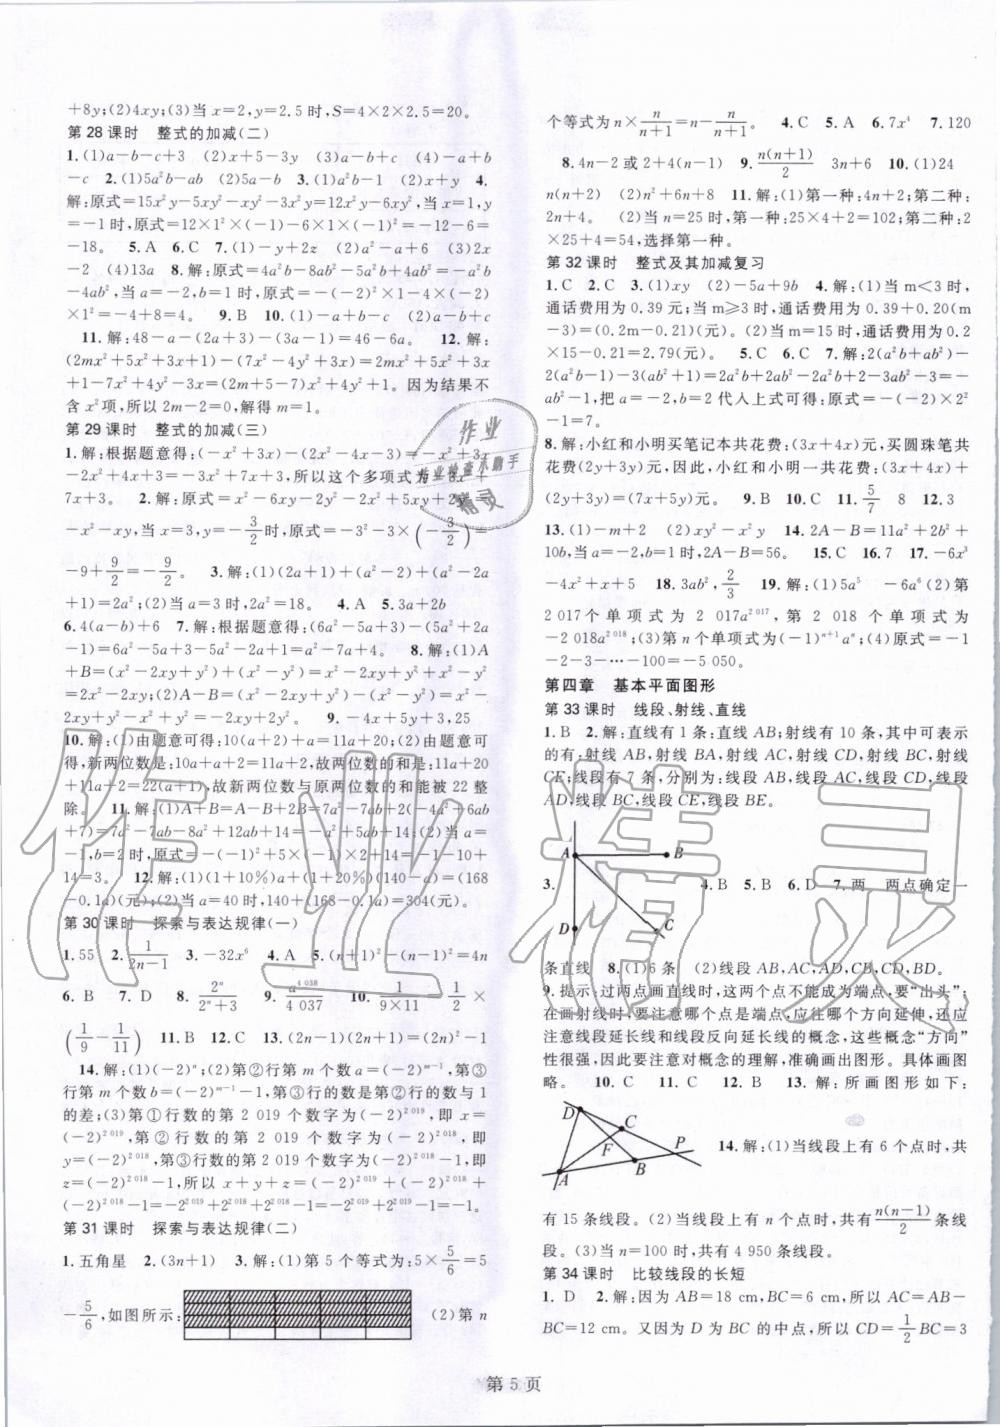 +8y;(2)4xy;(3)当 x=2,y=2.5 时,S=4×2×2.5=20。
第 28 课时　整式的加减(二)
1.(1)a-b-c+3　(2)x+5-3y　(3)a-b+c　(4)-a+b
-c　2.(1)5a²b-ab　(2)5xy　3.(1)a²b-1　(2)x+y　4.
解:原式=15x²y-5xy²-xy²-3x²y=12x²y-6xy²,当 x=1,y
=-1 时,原式=12×1²×(-1)-6×1×(-1)²=-12-6=
-18。　5.A　6.C　7.(1)-y+2z　(2)a²-a+6　(3)2x
-2　(4)13a　8.解:原式=4a²b-18ab²-5a²b+4ab²=-a²b
-4ab²,当 a=-2,b=1 时,原式=-(-2)²×1-4×(-2)
×1²=-4+8=4。　9.B　10.(1)-a+b-c　(2)a-b+c
11.解:48-a-(2a+3)-(3a-1)=46-6a。　12.解:
(2mx²+5x²+3x+1)-(7x²-4y²+3x)=2mx²+5x²+3x
+1-7x²+4y²-3x=(2m-2)x²+4y²+1。因为结果不
含 x²项,所以 2m-2=0,解得 m=1。
第 29 课时　整式的加减(三)
-x²-xy,当 x=-3,y=-3/2时,原式=-3²-3×(-3/2)=
-9+9/2=-9/2。　3.解:(1)(2a+1)+(a²-2a)+(a²-2a
+1)=2a²;(2)当 a=3 时,2a²=18。　4.A　5.3a+2b
6.4(a-b)+6　7.解:根据题意得:(6a²-5a+3)-(5a²+2a
-1)=6a²-5a+3-5a²-2a+1=a²-7a+4。　8.解:(1)A
+B=(x²-2xy+y²)+(x²+2xy+y²)=x²-2xy+y²+x²
y+y²-x²+x²-y²=-x²-2xy+y²。　9.-4x+5+y3,25
10.解:(1)由题意可得:10(a+2)+a=11a+20;(2)由题意可
得,新两位数是:10a+a+2=11a+2,故两位数的和是:11a+2
+20+11a=22(a+1),故新两位数与原两位数的和能被 22 整
除。　11.解:(1)A+B=A-B+2B=7a²-7ab+2(-4a²+6ab
+7)=7a²-7ab-8a²+12ab+14=-a²+5ab+14;(2)当 a=
-1,b=2 时,原式=-(-1)²+5×(-1)×2+14=-1-10+
14=3。　12.解:(1)(1+10%)a+(1+20%)(140-a)=(168
-0.1a)(元);(2)当 a=40 时,140+(168-0.1a)=304(元)。
第 30 课时　探索与表达规律(一)
1.55　2.1/(2n-1)　3.-32x⁶　4.A　5.(n+1)²-(n-1)²=4n
6.B　7.D　8.2ⁿ/(2ⁿ+3)　9.a⁴⁰³⁸/4 037　10.1/(9×11)　1/2×
(1/9-1/11)　11.B　12.C　13.(2n-1)(2n+1)=(2n)²-1
14.解:(1)(-2)ⁿ;(2)第②行第 m 个数 a=(-2)ᵐ⁻¹,第③
行第 m 个数 b=(-2)ᵐ-1;第③行的数是第②行的数与 1
的差;(3)第①行数的第 2 019 个数字为(-2)²⁰¹⁹,即 x=
(-2)²⁰¹⁹,第②行数的第 2 019 个数字为(-2)²⁰¹⁸,即
y=(-2)²⁰¹⁸,第③行数的第 2 019 个数字为(-2)²⁰¹⁸-1,即
z=(-2)²⁰¹⁸-1,所以 x+y+z=(-2)²⁰¹⁹+(-2)²⁰¹⁸+
(-2)²⁰¹⁸-1=-2²⁰¹⁹+2²⁰¹⁸+2²⁰¹⁸-1=-2²⁰¹⁹+2²⁰¹⁹-1=-1
第 31 课时　探索与表达规律(二)
1.五角星　2.(3n+1)　3.解:(1)第 5 个等式为:5×5/6=5
-5/6,如图所示:　(2)第 n
个等式为 n×n/(n+1)=n-n/(n+1)。　4.C　5.A　6.7x⁴　7.120
8.4n-2 或 2+4(n-1)　9.n(n+1)/2　3n+6　10.(1)24
n(n+2)　(2)n²+6n+8　11.解:(1)第一种:4n+2;第二种:
2n+4。(2)当 n=25 时,第一种:25×4+2=102;第二种:2
×25+4=54,选择第一种。
第 32 课时　整式及其加减复习
1.C　2.C　3.(1)xy　(2)-5a+9b　4.解:(1)当 m<3 时,
通话费用为 0.39 元;当 m≥3 时,通话费用为 0.39+0.20(m
-3)=(0.2m-0.21)(元)。(2)当 m=15 时,通话费用为 0.2
×15-0.21=2.79(元)。　5.C　6.C　7.解:2(a²b+ab²)-
2(a²b-1)-3(ab²+1)=2a²b+2ab²-2a²b+2-3ab²-3=
-ab²-1,把 a=-2,b=2 代入上式可得:原式=-(-2)×2²
-1=7。
8.解:小红和小明买笔记本共花费:(3x+4x)元,买圆珠笔共
花费(2y+3y)元,因此,小红和小明一共花费:(3x+4x)+
(2y+3y)=(7x+5y)元。　9.B　10.C　11.5/7　8　12.3
13.(1)-m+2　(2)xy²-x²y　14.2A-B=11a²+2b²+
10b,当 a=-2,b=1 时,2A-B=56。　15.C　16.7　17.-6x³
-4x²+x+5　18.3ab²,2/3　19.解:(1)5a⁵　-6a⁶(2)第
2 017个单项式为 2 017a²⁰¹⁷,第 2 018 个单项式为
-2 018a²⁰¹⁸;(3)第 n 个单项式为(-1)ⁿ⁺¹aⁿ;(4)原式=-1
-2-3-…-100=-5 050。
第四章　基本平面图形
第 33 课时　线段、射线、直线
1.B　2.解:直线有 1 条:直线 AB;射线有 10 条,其中可表示
的有:射线 AB,射线 BA,射线 AC,射线 CD,射线 BC,射线
CE;线段有 7 条,分别为:线段 AB,线段 AC,线段 AD,线段
CD,线段 BC,线段 CE,线段 BE。
A
B
3.
D
C
4.B　5.B　6.D　7.两　两点确定一
条直线　8.(1)6 条　(2)线段 AB,AC,AD,CB,CD,BD。
9.提示:过两点画直线时,这两个点不能成为端点,要“出头”;
在画射线时要注意哪个点是端点,应往哪个方向延伸,还应
注意线段延长线和线段反向延长线的概念,这些概念“方向”
性很强,因此要注意对概念的理解,准确画出图形。具体画图
略。　10.C　11.C　12.B　13.解:所画图形如下:
D
C
P
F
B
A
14.解:(1)当线段上有 6 个点时,共
有 15 条线段。(2)当线段上有 n 个点时,共有n(n-1)/2条线
段。(3)当 n=100 时,共有 4 950 条线段。
第 34 课时　比较线段的长短
1.D　2.解:因为 AB=18 cm,BC=6 cm,所以 AC=AB-
BC=12 cm。又因为 D 为 BC 的中点,所以 CD=1/2BC=3
第 5 页
作业精灵
作业
作业检查小助手
精灵